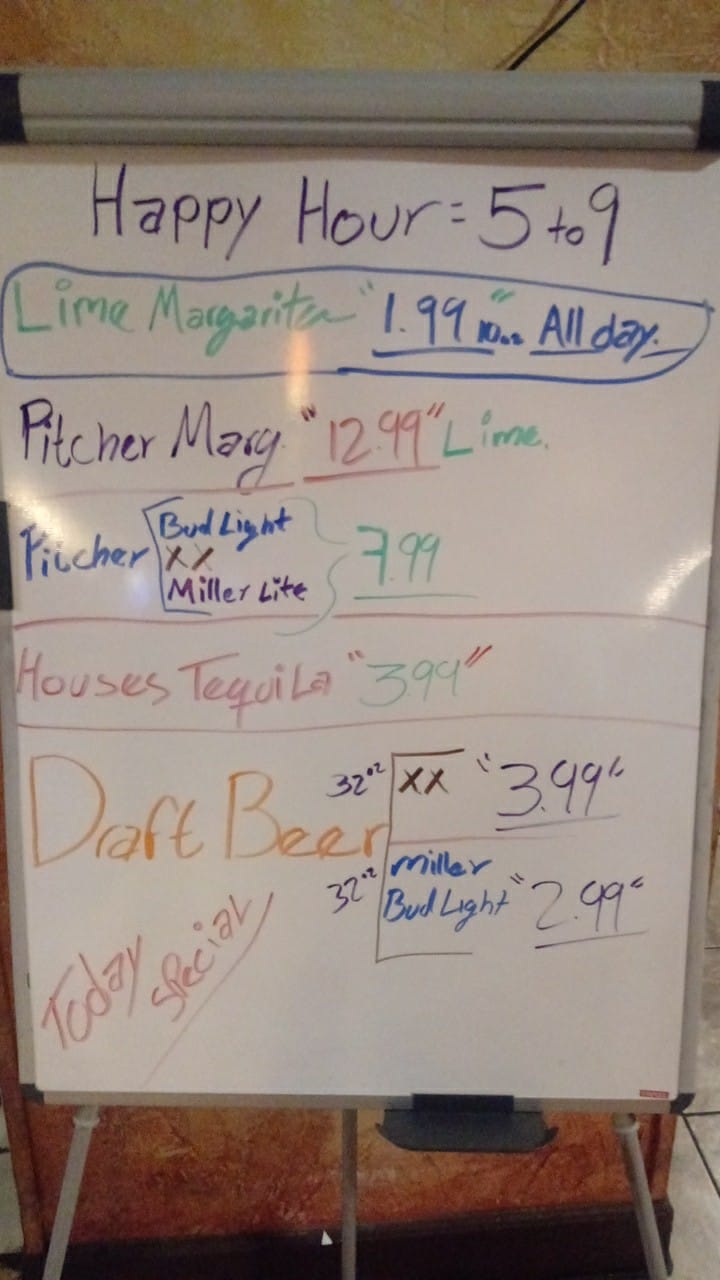 Happy Hour = 5 to 9
Lime Margarita "1.99" 10oz All day.
Pitcher Marg. "12.99" Lime.
Pitcher Bud Light
XX
Miller Lite
7.99
Houses Tequila "3.99"
Draft Beer
32oz XX "3.99"
32oz Miller
Bud Light "2.99"
Today
Special